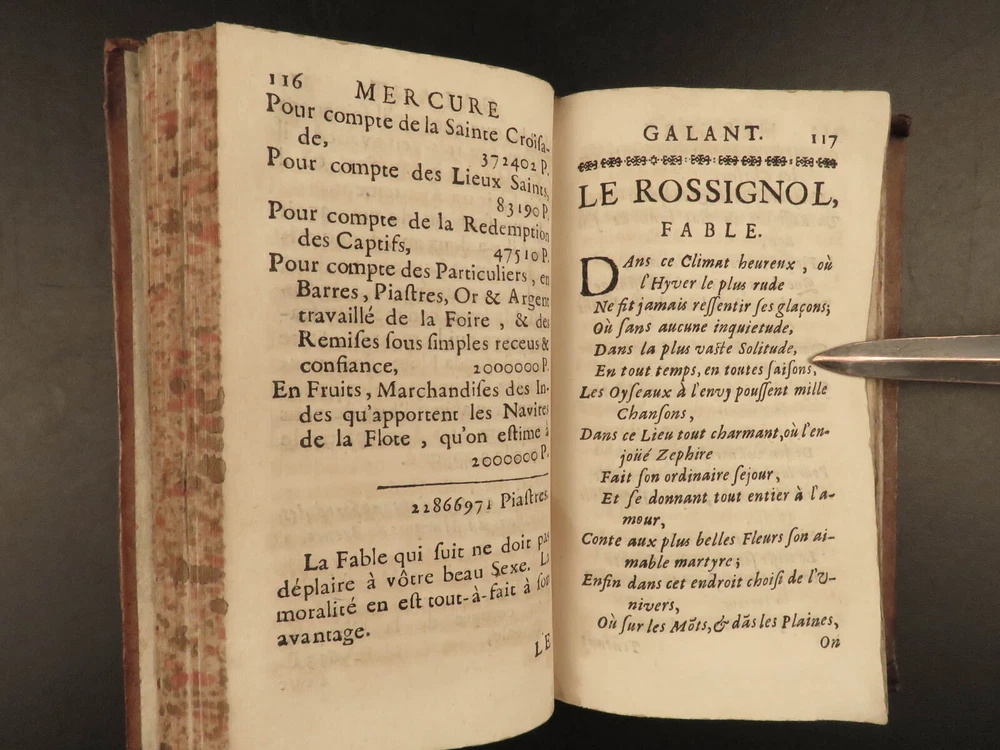 116 MERCURE
Pour compte de la Sainte Croïſa-
de, 372402 P.
Pour compte des Lieux Saints,
83190 P.
Pour compte de la Redemption
des Captifs, 47510 P.
Pour compte des Particuliers, en
Barres, Piaſtres, Or & Argent
travaillé de la Foire, & des
Remiſes ſous ſimples receus &
confiance, 2000000 P.
En Fruits, Marchandiſes des In-
des qu'apportent les Navires
de la Flote, qu'on eſtime à
2000000 P.
22866971 Piaſtres
La Fable qui ſuit ne doit pas
déplaire à vôtre beau Sexe. La
moralité en eſt tout-à-fait à ſon
avantage.
LE
GALANT. 117
LE ROSSIGNOL,
FABLE.
DAns ce Climat heureux, où
l'Hyver le plus rude
Ne fit jamais reſſentir ſes glaçons;
Où ſans aucune inquietude,
Dans la plus vaſte Solitude,
En tout temps, en toutes ſaiſons,
Les Oyſeaux à l'envy pouſſent mille
Chanſons,
Dans ce Lieu tout charmant, où l'en-
joüé Zephire
Fait ſon ordinaire ſejour,
Et ſe donnant tout entier à l'a-
mour,
Conte aux plus belles Fleurs ſon ai-
mable martyre;
Enfin dans cet endroit choiſi de l'V-
nivers,
Où ſur les Mõts, & dãs les Plaines,
On